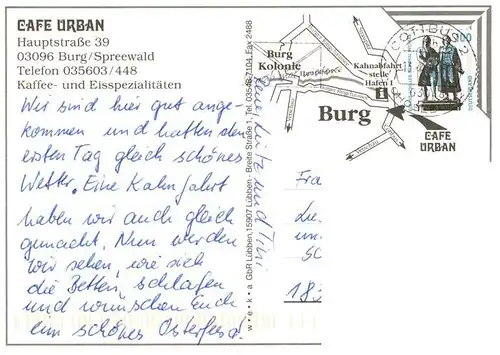 CAFE URBAN
Hauptstraße 39
03096 Burg/Spreewald
Telefon 035603/448
Kaffee- und Eisspezialitäten
Wir sind hier gut ange-
kommen und hatten den
ersten Tag gleich schönes
Wetter. Eine Kahnfahrt
haben wir auch gleich
gemacht. Nun werden
wir sehen, wie sich
die Betten schlafen
und wünschen Euch
ein schönes Osterfest!
und Tini
w·e·k·a GbR Lübben, 15907 Lübben - Breite Straße 1, Tel. 03546-7104, Fax 2488
Burg
Kolonie
Hauptstraße
Kahnabfahrt
stelle
Hafen 1
Burg
CAFE
URBAN
COTTBUS 2
300
DEUTSCHLAND
Fra
un